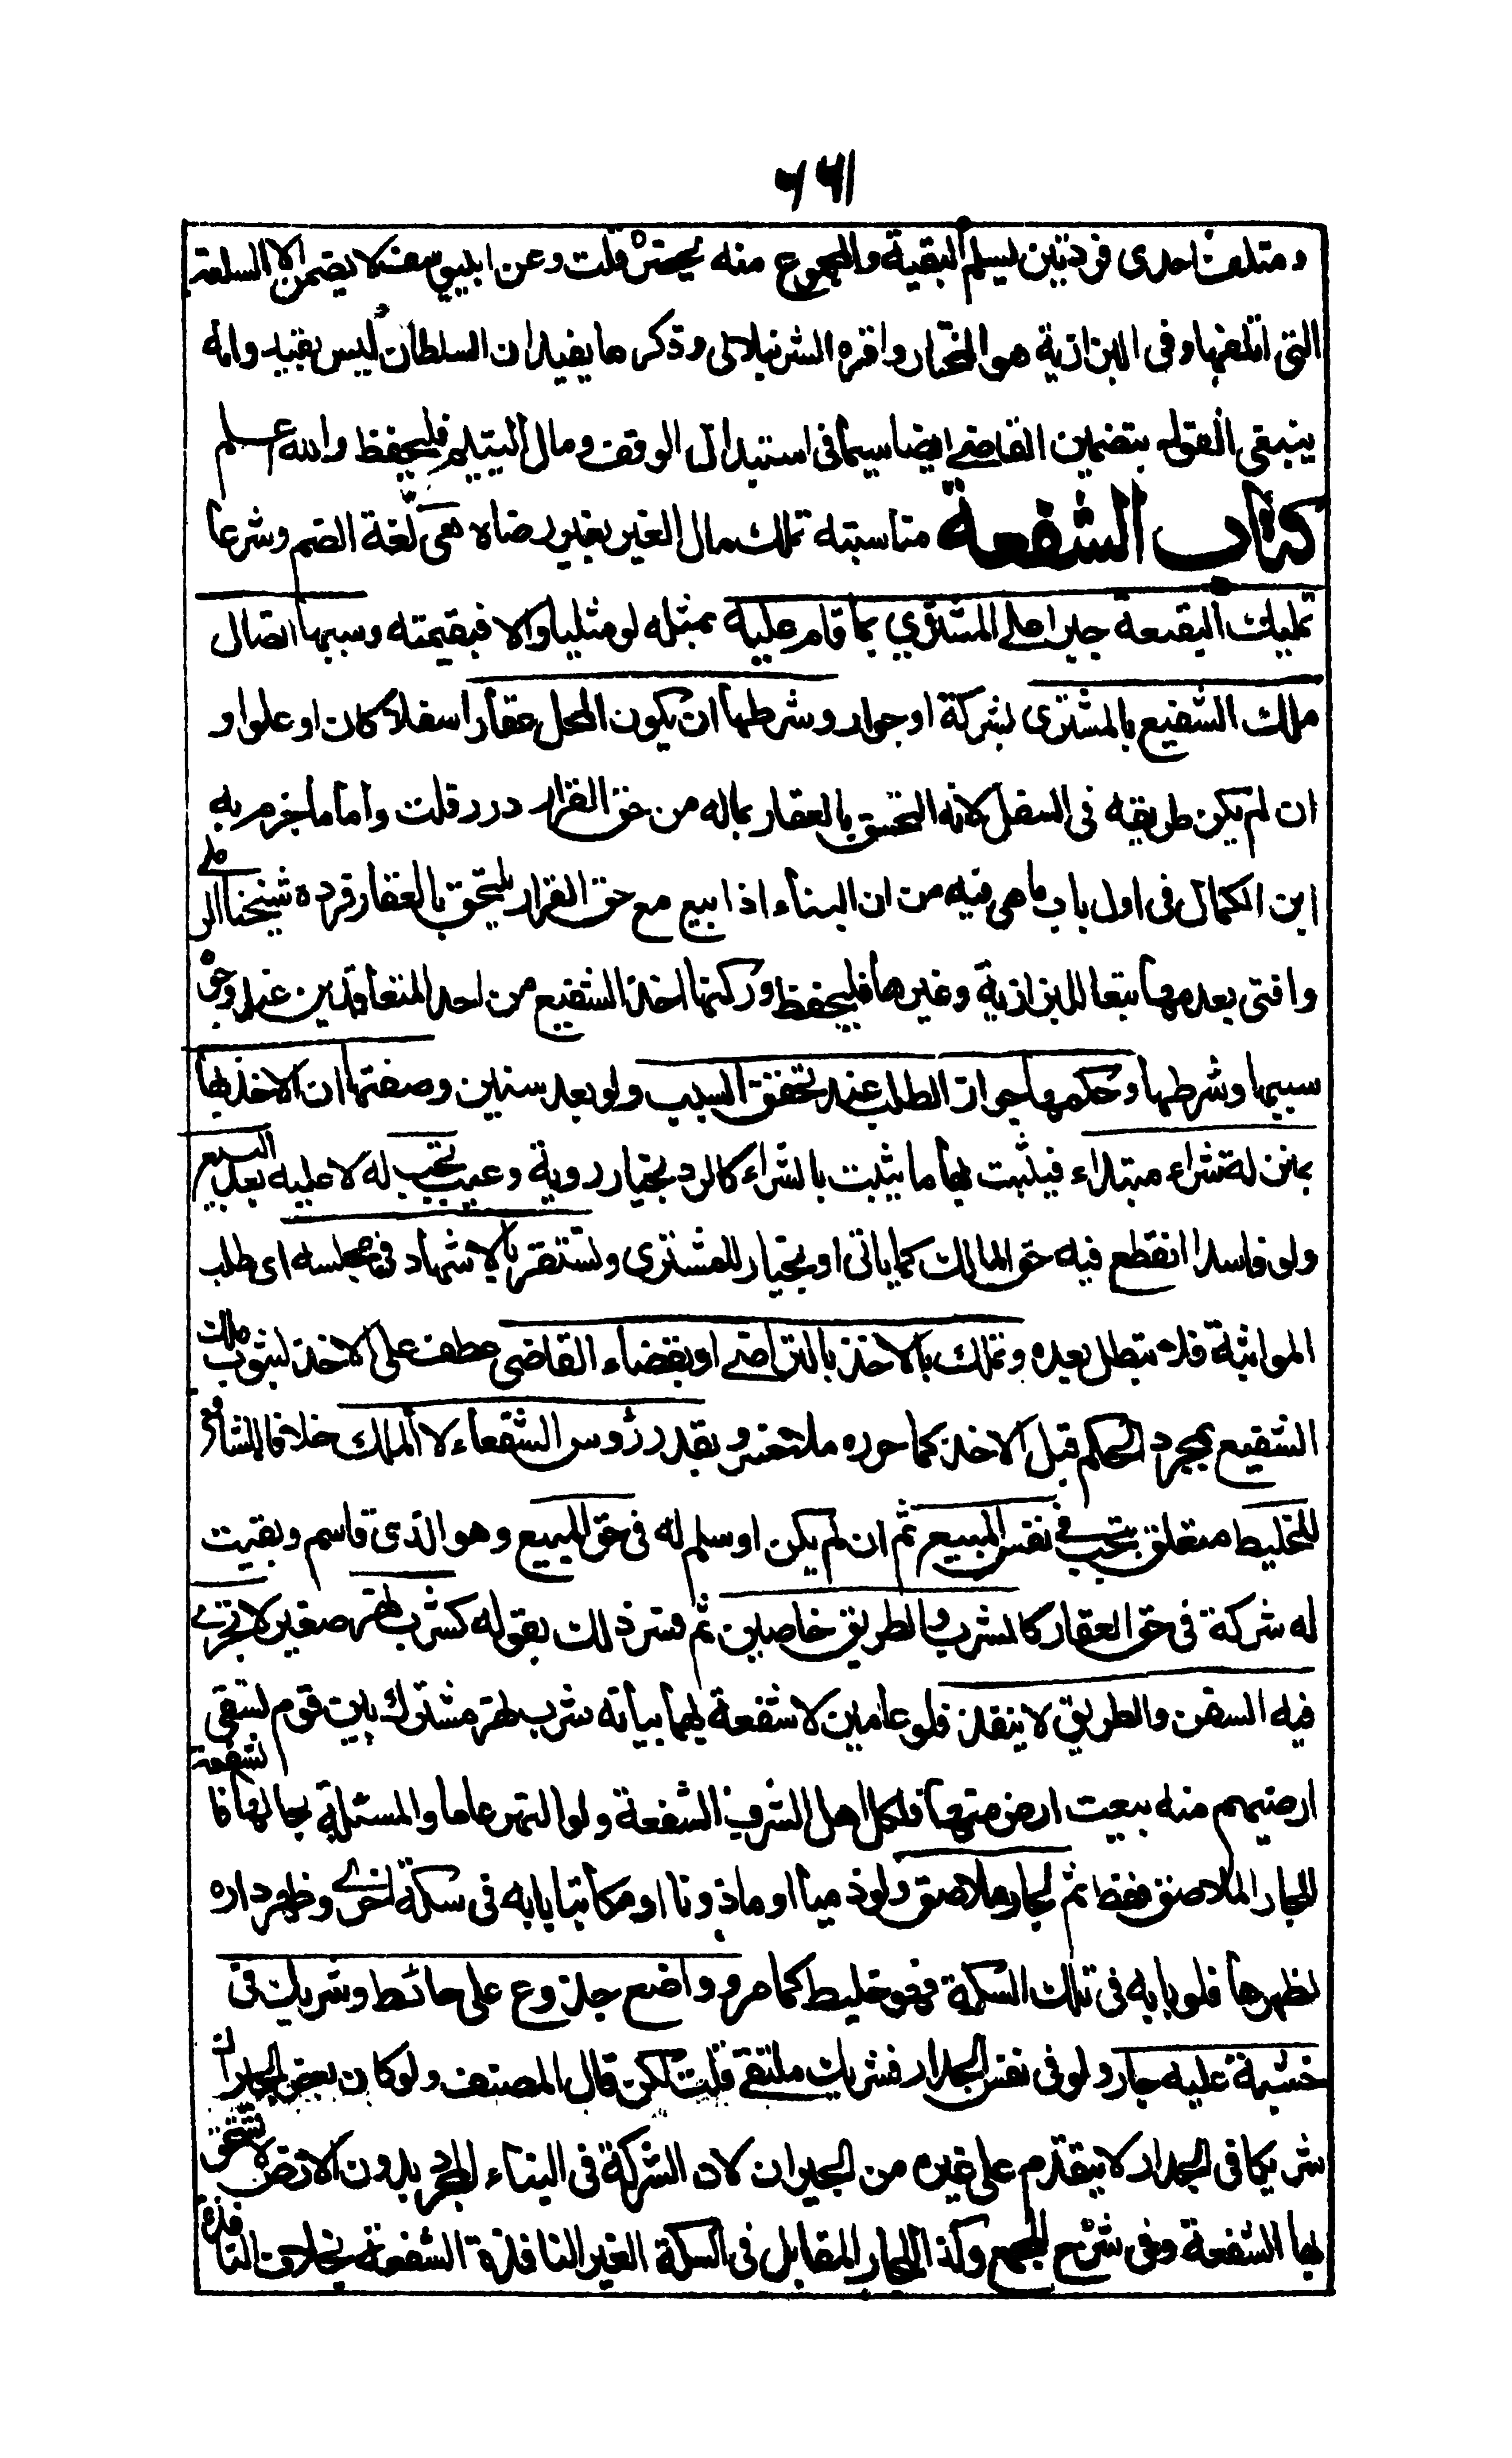 ٦٦١
ومتلف احدى فردتين يسلم البقية والمجموع منه يحضره قلت وعن ابى يوسف لا يضمن الا السلعة
التى اتلفها وفى البزازية هو المختار واقره الشرنبلالى وذكر ما يفيد ان السلطان ليس بقيد وانه
ينبغى القول بتضمين القاضى ايضا سيما فى استبدال الوقف ومال اليتيم فليحفظ والله اعلم
كتاب الشفعة مناسبته تملك مال الغير بغير رضاه هى لغة الضم وشرعا
تمليك البقعة جبرا على المشتري بما قام عليه بمثله لو مثليا والا فبقيمته وسببها اتصال
ملك الشفيع بالمشترى بشركة او جوار وشرطها ان يكون المحل عقارا سفلا كان او علوا و
ان لم يكن طريقه فى السفل لانه التحق بالعقار بماله من حق القرار درر قلت واما ما جزم به
ابن الكمال فى اول باب ما هى فيه من ان البناء اذا بيع مع حق القرار يلتحق بالعقار فرده شيخنا الرملى
وافتى بعدمها تبعا للبزازية وغيرها فليحفظ وركنها اخذ الشفيع من احد المتعاقدين عند وجود
سببها وشرطها وحكمها جواز الطلب عند تحقق السبب ولو بعد سنين وصفتها ان الاخذ بها
بمنزلة شراء مبتداء فيثبت بها ما يثبت بالشراء كالرد بخيار روية وعيب تجب له لا عليه بعد البيع
ولو فاسدا انقطع فيه حق المالك كما ياتى او بخيار للمشترى وتستقر بالاشهاد فى مجلسه اى طلب
المواثبة فلا تبطل بعده وتملك بالاخذ بالتراضى او بقضاء القاضى عطف على الاخذ لثبوت ملك
الشفيع بمجرد الحكم قبل الاخذ كما حرره ملا خسرو بقدر رؤوس الشفعاء لا الملك خلافا للشافعى
للخليط متعلق بتجب فى نفس المبيع ثم ان لم يكن او سلم له فى حق المبيع وهو الذى قاسم وبقيت
له شركة فى حق العقار كالشرب والطريق خاصين ثم فسر ذلك بقوله كشرب نهر صغير لا تجرى
فيه السفن والطريق لا ينفذ فلو عامين لا شفعة بهما بيانه شرب نهر مشترك بين قوم تسقى
ارضيهم منه بيعت ارض منها فلكل اهل الشرب الشفعة ولو النهر عاما والمسئلة بحالها فالشفعة
للجار الملاصق فقط ثم لجار ملاصق ولو ذميا او ماذونا او مكاتبا بابه فى سكة اخرى وظهر داره
لظهرها فلو بابه فى تلك السكة فهو خليط كما مر وواضع جذوع على حائط وشريك فى
خشبة عليه جار ولو فى نفس الجدار فشريك ملتقى قلت لكن قال المصنف ولو كان بعض الجيران
شريكا فى الجدار لا يتقدم على غيره من الجيران لان الشركة فى البناء المجرد بدون الارض لا تستحق
بها الشفعة وفى شرح المجمع وكذا للجار المقابل فى السكة الغير النافذة الشفعة بخلاف النافذة